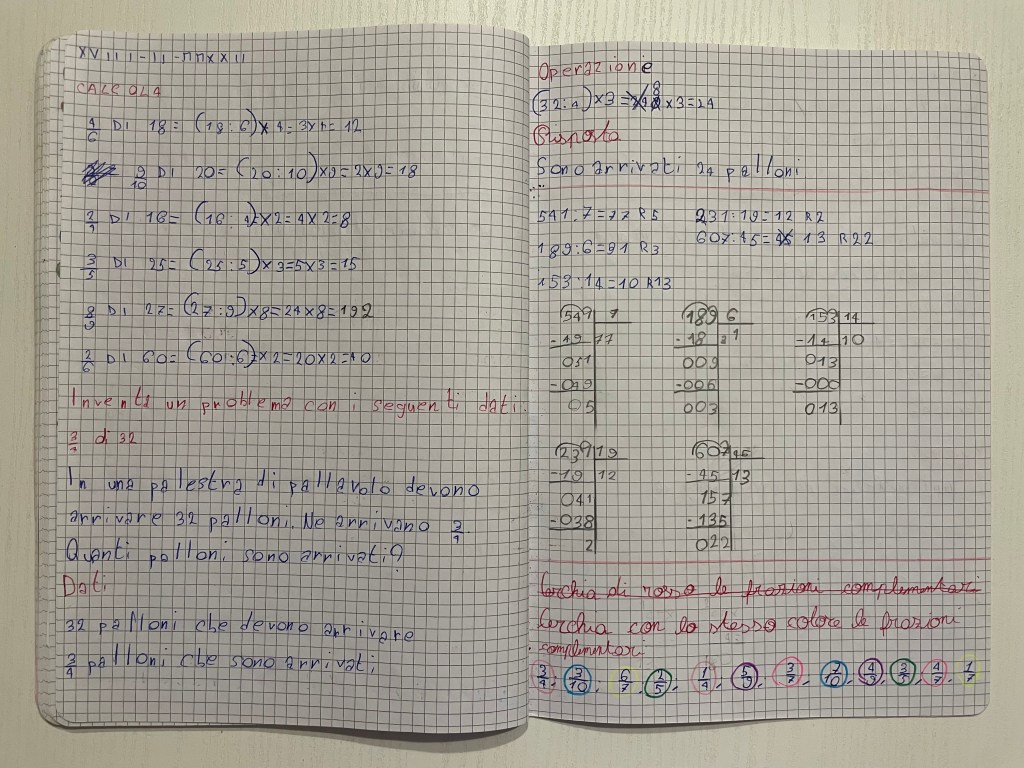 XVIII-II-MMXXII
CALCOLA
4/6 DI 18= (18:6)×4=3×4=12
9/10 DI 20= (20:10)×9=2×9=18
2/4 DI 16= (16:4)×2=4×2=8
3/5 DI 25= (25:5)×3=5×3=15
8/9 DI 27= (27:9)×8=24×8=192
2/6 DI 60= (60:6)×2=20×2=40
Inventa un problema con i seguenti dati.
3/4 di 32
In una palestra di pallavolo devono
arrivare 32 palloni. Ne arrivano 3/4
Quanti palloni sono arrivati?
Dati
32 palloni che devono arrivare
3/4 palloni che sono arrivati
Operazione
(32:4)×3= 8 ×3=24
Risposta
Sono arrivati 24 palloni
541:7=77 R5 231:19=12 R2
189:6=91 R3 607:45= 13 R22
153:14=10 R13
549 7 189 6 153 14
-49 77 -18 31 -14 10
051 009 013
-049 -006 -000
05 003 013
239 19 607 45
-19 12 -45 13
041 157
-038 -135
2 022
Cerchia di rosso le frazioni complementari
Cerchia con lo stesso colore le frazioni
complementari
3/4, 3/10, 6/7, 2/5, 1/4, 5/9, 3/7, 7/10, 4/9, 3/5, 4/7, 1/7